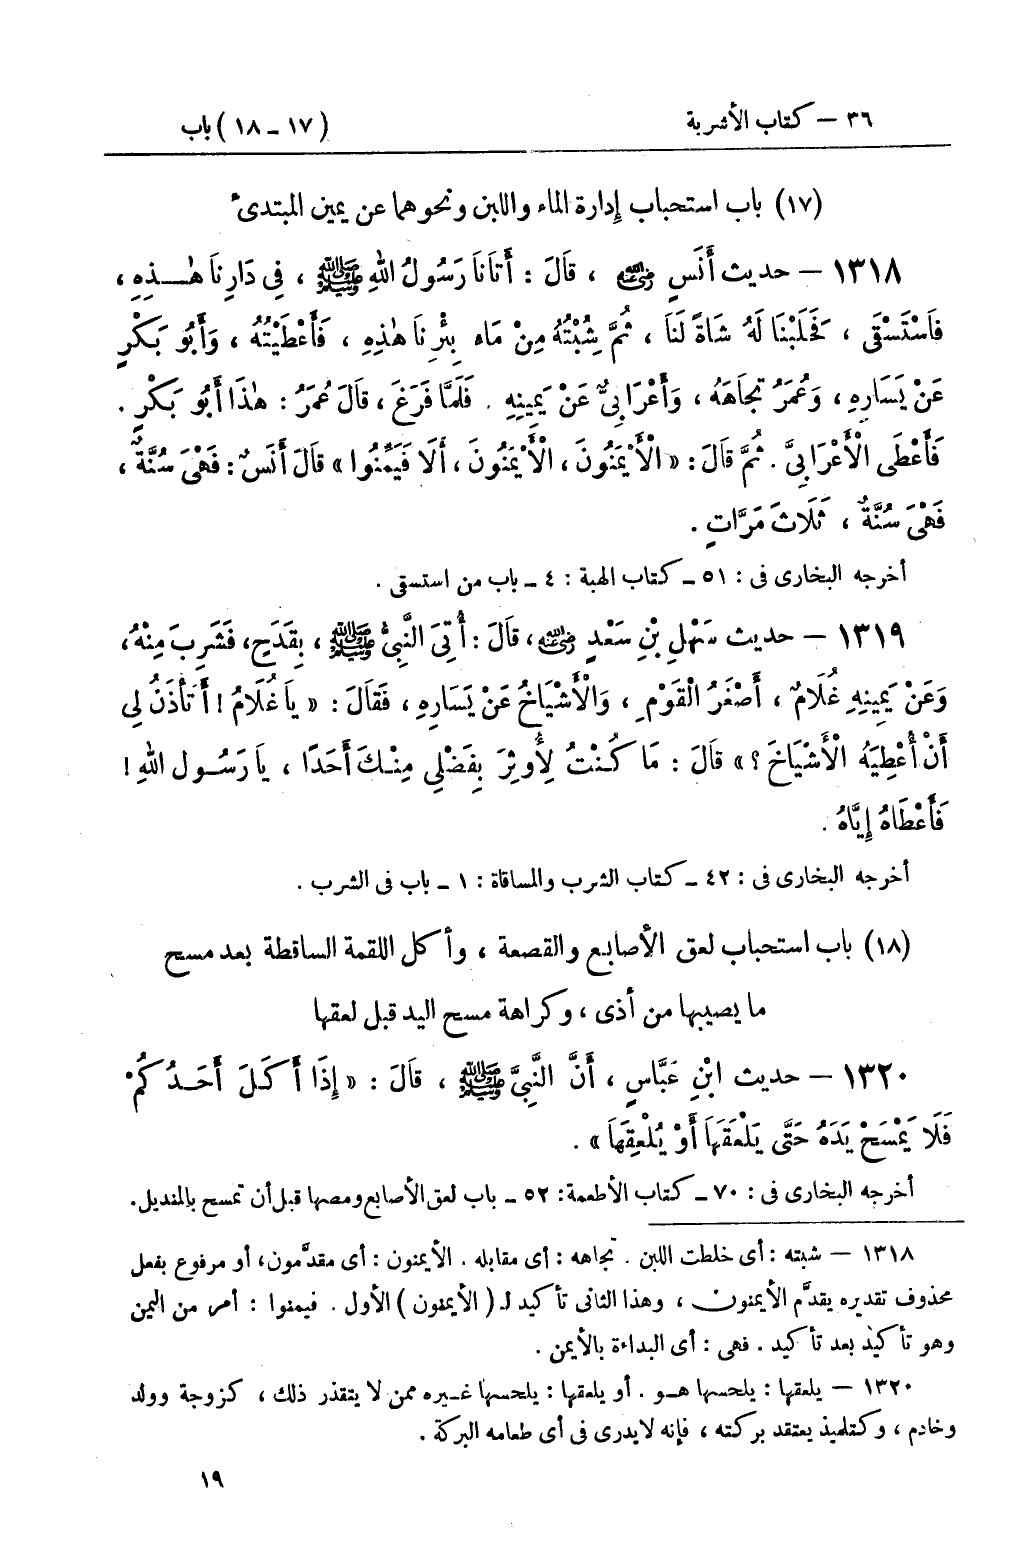 ٣٦ – كتاب الأشربة
(١٧ – ١٨) باب
(١٧) باب استحباب إدارة الماء واللبن ونحوهما عن يمين المبتدىء
١٣١٨ – حديث أَنَسٍ رضي الله عنه ، قَالَ : أَتَانَا رَسُولُ اللهِ ﷺ ، فِي دَارِنَا هٰذِهِ ،
فَاسْتَسْقَى ، فَحَلَبْنَا لَهُ شَاةً لَنَا ، ثُمَّ شِبْتُهُ مِنْ مَاءِ بِئْرِنَا هٰذِهِ ، فَأَعْطَيْتُهُ ، وَأَبُو بَكْرٍ
عَنْ يَسَارِهِ ، وَعُمَرُ تُجَاهَهُ ، وَأَعْرَابِيٌّ عَنْ يَمِينِهِ . فَلَمَّا فَرَغَ ، قَالَ عُمَرُ : هٰذَا أَبُو بَكْرٍ .
فَأَعْطَى الْأَعْرَابِيَّ . ثُمَّ قَالَ : « الْأَيْمَنُونَ ، الْأَيْمَنُونَ ، أَلَا فَيَمِّنُوا » قَالَ أَنَسٌ : فَهْىَ سُنَّةٌ ،
فَهْىَ سُنَّةٌ ، ثَلَاثَ مَرَّاتٍ .
أخرجه البخارى فى : ٥١ – كتاب الهبة : ٤ – باب من استسقى .
١٣١٩ – حديث سَهْلِ بْنِ سَعْدٍ رضي الله عنه ، قَالَ : أُتِىَ النَّبِىُّ ﷺ ، بِقَدَحٍ ، فَشَرِبَ مِنْهُ ،
وَعَنْ يَمِينِهِ غُلَامٌ ، أَصْغَرُ الْقَوْمِ ، وَالْأَشْيَاخُ عَنْ يَسَارِهِ ، فَقَالَ : « يَا غُلَامُ ! أَتَأْذَنُ لِى
أَنْ أُعْطِيَهُ الْأَشْيَاخَ ؟ » قَالَ : مَا كُنْتُ لِأُوثِرَ بِفَضْلِى مِنْكَ أَحَدًا ، يَا رَسُولَ اللهِ !
فَأَعْطَاهُ إِيَّاهُ .
أخرجه البخارى فى : ٤٢ – كتاب الشرب والمساقاة : ١ – باب فى الشرب .
(١٨) باب استحباب لعق الأصابع والقصعة ، وأكل اللقمة الساقطة بعد مسح
ما يصيبها من أذى ، وكراهة مسح اليد قبل لعقها
١٣٢٠ – حديث ابْنِ عَبَّاسٍ ، أَنَّ النَّبِىَّ ﷺ ، قَالَ : « إِذَا أَكَلَ أَحَدُكُمْ
فَلَا يَمْسَحْ يَدَهُ حَتَّى يَلْعَقَهَا أَوْ يُلْعِقَهَا » .
أخرجه البخارى فى : ٧٠ – كتاب الأطعمة : ٥٢ – باب لعق الأصابع ومصها قبل أن تمسح بالمنديل .
١٣١٨ – شبته : أى خلطت اللبن . تجاهه : أى مقابله . الأيمنون : أى مقدَّمون ، أو مرفوع بفعل
محذوف تقديره يقدَّم الأيمنون ، وهذا الثانى تأكيد لـ ( الأيمنون ) الأول . فيمنوا : أمر من اليمن
وهو تأكيد بعد تأكيد . فهى : أى البداءة بالأيمن .
١٣٢٠ – يلعقها : يلحسها هو . أو يلعقها : يلحسها غيره ممن لا يتقذر ذلك ، كزوجة وولد
وخادم ، وكتلميذ يعتقد بركته ، فإنه لا يدرى فى أى طعامه البركة .
١٩